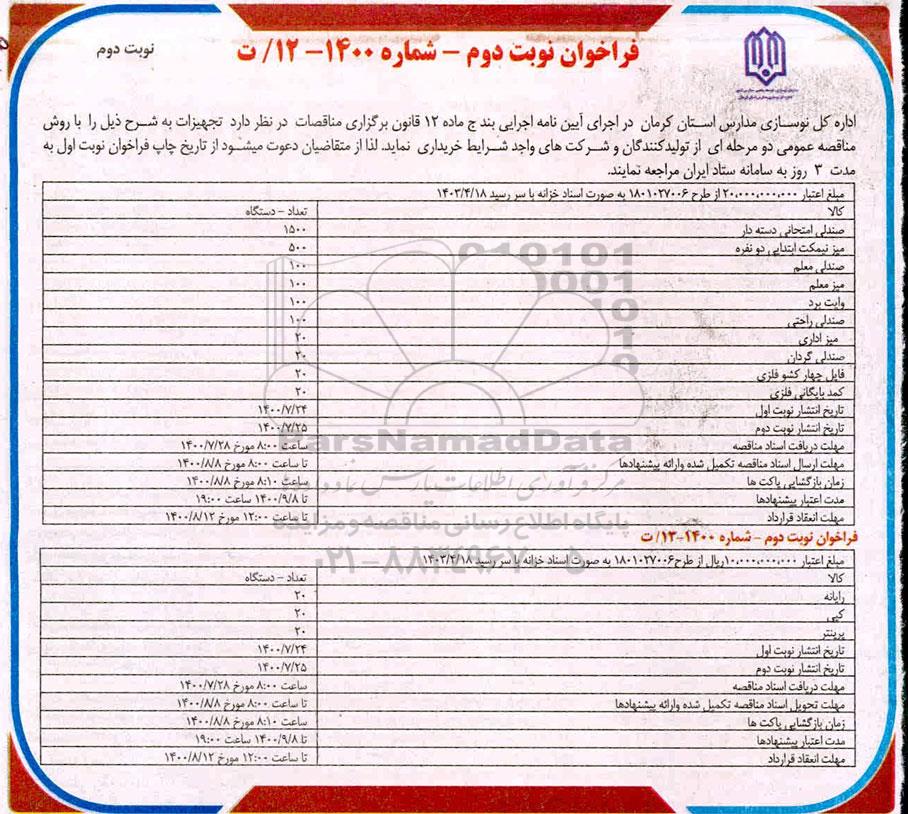 نوبت دوم
فراخوان نوبت دوم – شماره ۱۴۰۰– ۱۲/ ت
اداره کل نوسازی مدارس استان کرمان در اجرای آیین نامه اجرایی بند ج ماده ۱۲ قانون برگزاری مناقصات در نظر دارد تجهیزات به شرح ذیل را با روش
مناقصه عمومی دو مرحله ای از تولیدکنندگان و شرکت های واجد شرایط خریداری نماید. لذا از متقاضیان دعوت میشود از تاریخ چاپ فراخوان نوبت اول به
مدت ۳ روز به سامانه ستاد ایران مراجعه نمایند.
مبلغ اعتبار ۲۰,۰۰۰,۰۰۰,۰۰۰ از طرح ۱۸۰۱۰۲۷۰۰۶ به صورت اسناد خزانه با سر رسید ۱۴۰۳/۴/۱۸
کالا تعداد – دستگاه
صندلی امتحانی دسته دار ۱۵۰۰
میز نیمکت ابتدایی دو نفره ۵۰۰
صندلی معلم ۱۰۰
میز معلم ۱۰۰
وایت برد ۱۰۰
صندلی راحتی ۱۰۰
میز اداری ۲۰
صندلی گردان ۲۰
فایل چهار کشو فلزی ۲۰
کمد بایگانی فلزی ۲۰
تاریخ انتشار نوبت اول ۱۴۰۰/۷/۲۴
تاریخ انتشار نوبت دوم ۱۴۰۰/۷/۲۵
مهلت دریافت اسناد مناقصه ساعت ۸:۰۰ مورخ ۱۴۰۰/۷/۲۸
مهلت ارسال اسناد مناقصه تکمیل شده وارائه پیشنهادها تا ساعت ۸:۰۰ مورخ ۱۴۰۰/۸/۸
زمان بازگشایی پاکت ها ساعت ۸:۱۰ مورخ ۱۴۰۰/۸/۸
مدت اعتبار پیشنهادها تا ۱۴۰۰/۹/۸ ساعت ۱۹:۰۰
مهلت انعقاد قرارداد تا ساعت ۱۲:۰۰ مورخ ۱۴۰۰/۸/۱۲
فراخوان نوبت دوم – شماره ۱۴۰۰-۱۳/ ت
مبلغ اعتبار ۱۰,۰۰۰,۰۰۰,۰۰۰ریال از طرح۱۸۰۱۰۲۷۰۰۶ به صورت اسناد خزانه با سر رسید ۱۴۰۳/۴/۱۸
کالا تعداد – دستگاه
رایانه ۲۰
کپی ۲۰
پرینتر ۲۰
تاریخ انتشار نوبت اول ۱۴۰۰/۷/۲۴
تاریخ انتشار نوبت دوم ۱۴۰۰/۷/۲۵
مهلت دریافت اسناد مناقصه ساعت ۸:۰۰ مورخ ۱۴۰۰/۷/۲۸
مهلت تحویل اسناد مناقصه تکمیل شده وارائه پیشنهادها تا ساعت ۸:۰۰ مورخ ۱۴۰۰/۸/۸
زمان بازگشایی پاکت ها ساعت ۸:۱۰ مورخ ۱۴۰۰/۸/۸
مدت اعتبار پیشنهادها تا ۱۴۰۰/۹/۸ ساعت ۱۹:۰۰
مهلت انعقاد قرارداد تا ساعت ۱۲:۰۰ مورخ ۱۴۰۰/۸/۱۲
ParsNamadData
مرکز فرآوری اطلاعات پارس نماد داده ها
پایگاه اطلاع رسانی مناقصه و مزایده
۰۲۱-۸۸۳۴۹۶۷۰-۵